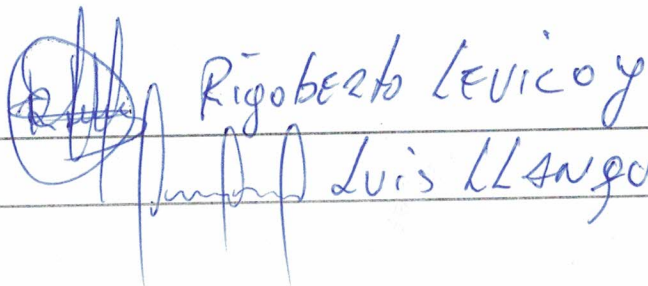 Rigoberto LEVICOY
Luis LLANQU